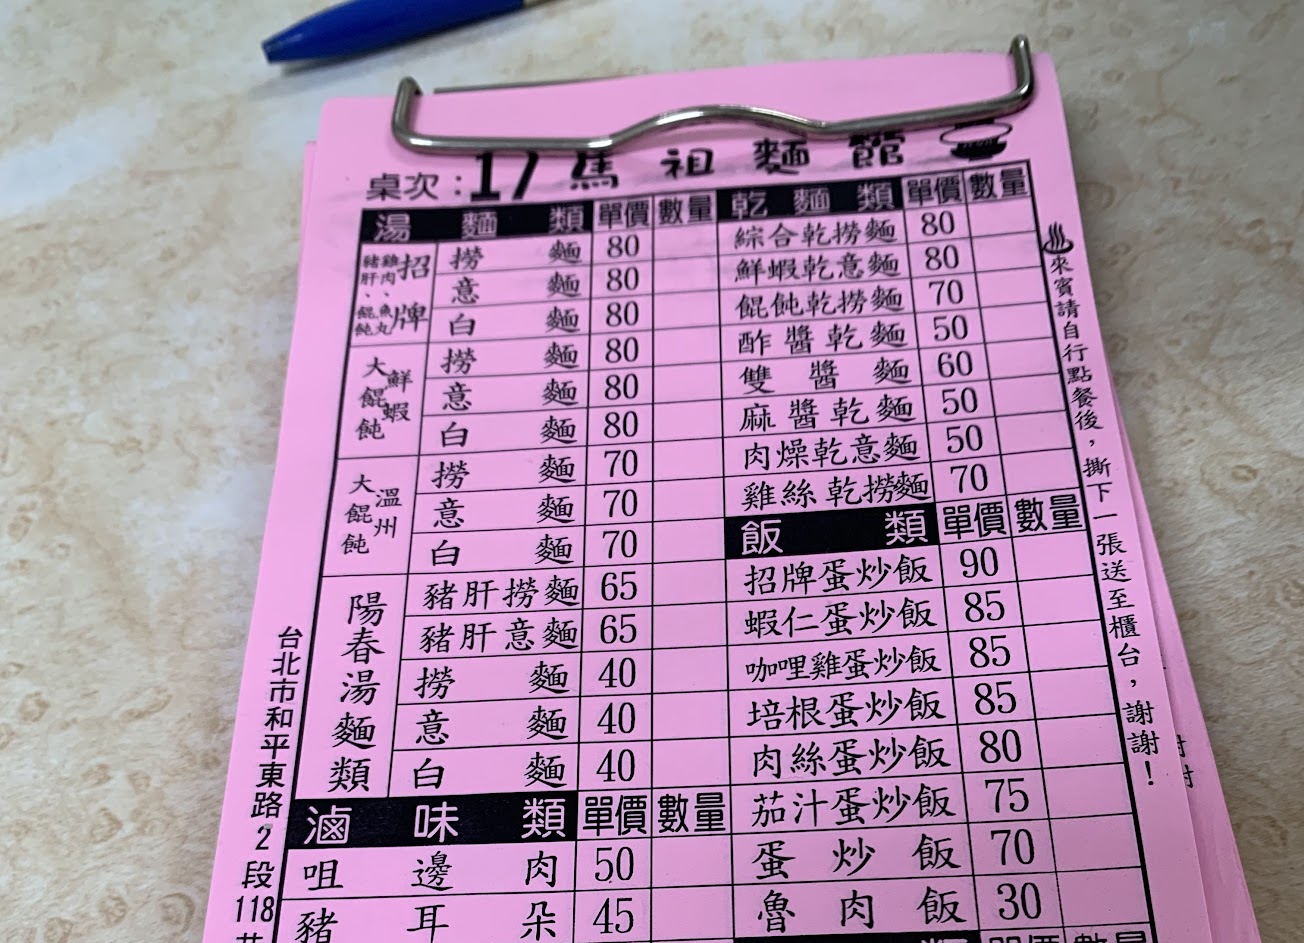 桌次：17 馬祖麵館
湯麵類 單價 數量
招牌 雞肉、魚丸 豬肝、餛飩
撈麵 80
意麵 80
白麵 80
鮮蝦大餛飩
撈麵 80
意麵 80
白麵 80
溫州大餛飩
撈麵 70
意麵 70
白麵 70
陽春湯麵類
豬肝撈麵 65
豬肝意麵 65
撈麵 40
意麵 40
白麵 40
滷味類 單價 數量
咀邊肉 50
豬耳朵 45
乾麵類 單價 數量
綜合乾撈麵 80
鮮蝦乾意麵 80
餛飩乾撈麵 70
酢醬乾麵 50
雙醬麵 60
麻醬乾麵 50
肉燥乾意麵 50
雞絲乾撈麵 70
飯類 單價 數量
招牌蛋炒飯 90
蝦仁蛋炒飯 85
咖哩雞蛋炒飯 85
培根蛋炒飯 85
肉絲蛋炒飯 80
茄汁蛋炒飯 75
蛋炒飯 70
魯肉飯 30
類 單價 數量
♨來賓請自行點餐後，撕下一張送至櫃台，謝謝！
台北市和平東路2段118